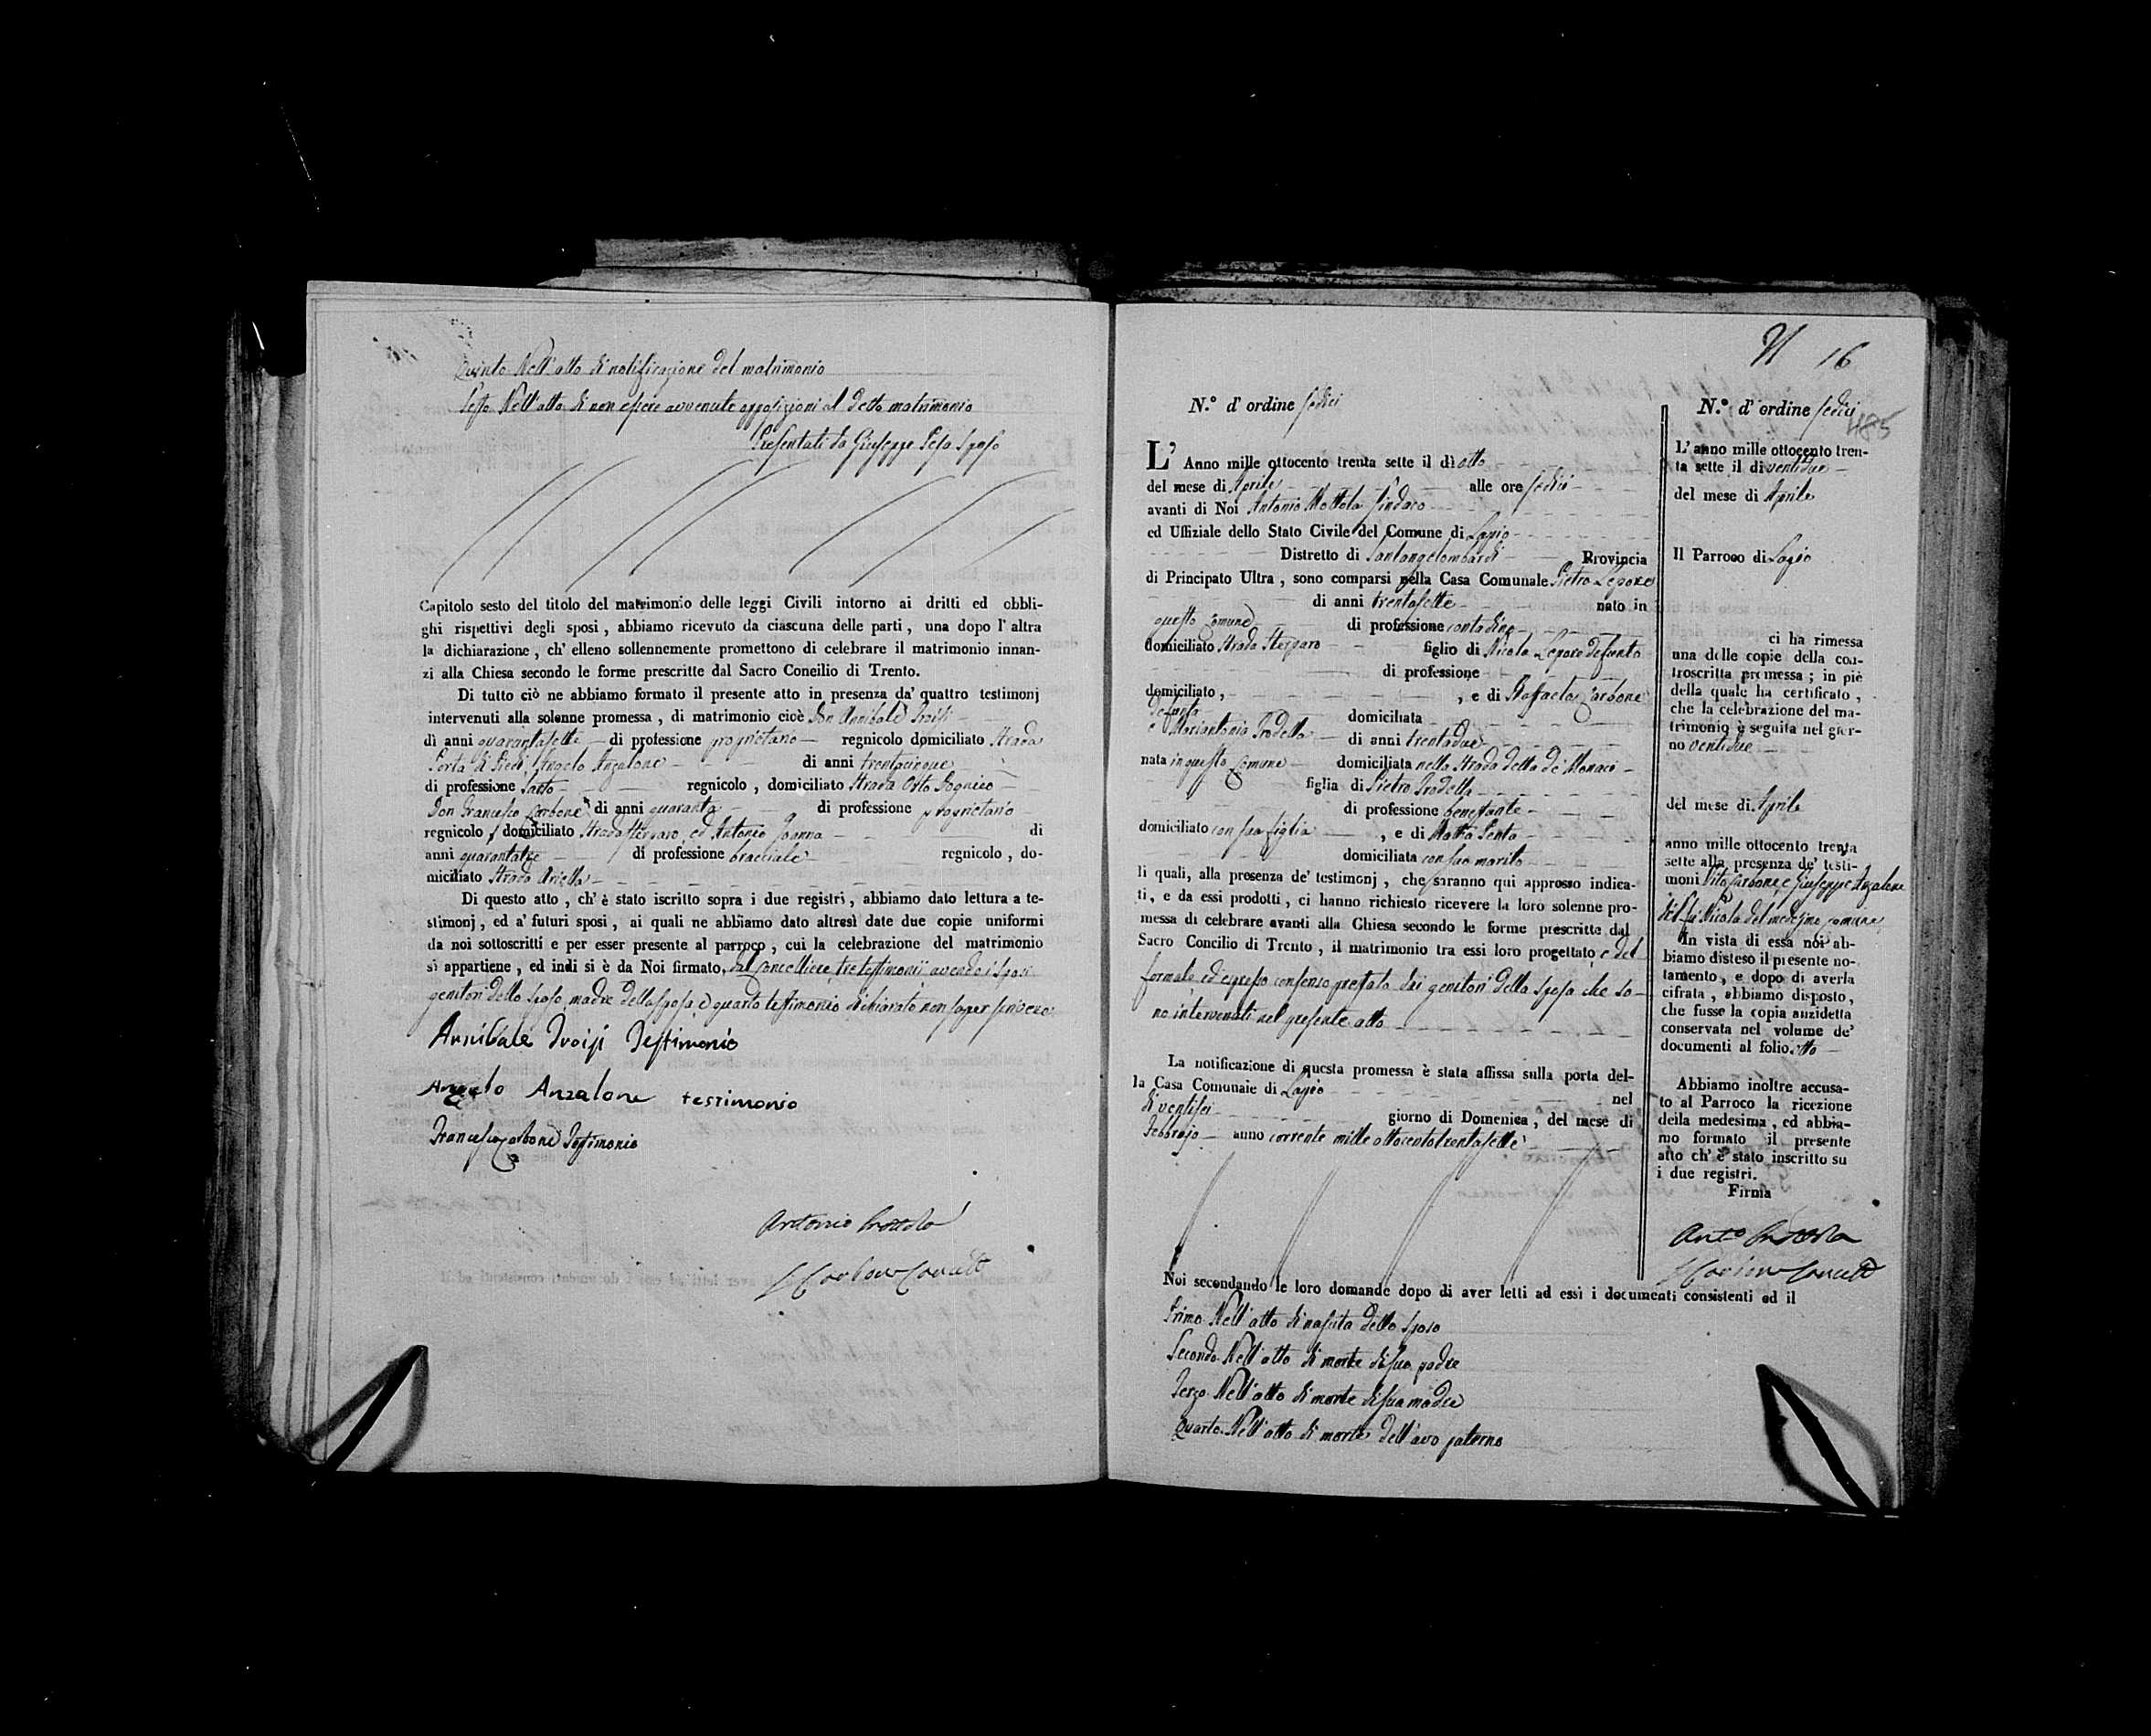 Quinto Nell'atto di notificazione del matrimonio
Sesto Nell'atto di non essere avvenute opposizioni al detto matrimonio
Presentati da Giuseppe Pesa Sposo
Capitolo sesto del titolo del matrimonio delle leggi Civili intorno ai dritti ed obbli-
ghi rispettivi degli sposi, abbiamo ricevuto da ciascuna delle parti, una dopo l'altra
la dichiarazione, ch' elleno sollennemente promettono di celebrare il matrimonio innan-
zi alla Chiesa secondo le forme prescritte dal Sacro Concilio di Trento.
Di tutto ciò ne abbiamo formato il presente atto in presenza da' quattro testimonj
intervenuti alla solenne promessa, di matrimonio cioè Don Annibale Troisi
di anni quarantasette di professione proprietario regnicolo domiciliato Strada
Porta di Piedi, Angelo Anzalone di anni trentacinque
di professione Sarto regnicolo, domiciliato Strada Orto
Don Francesco Carbone di anni quaranta di professione proprietario
regnicolo, domiciliato Strada Sterparo ed Antonio Ioanna di
anni quarantatre di professione bracciale regnicolo, do-
miciliato Strada Ariella
Di questo atto, ch' è stato iscritto sopra i due registri, abbiamo dato lettura a te-
stimonj, ed a' futuri sposi, ai quali ne abbiamo dato altresì date due copie uniformi
da noi sottoscritti e per esser presente al parroco, cui la celebrazione del matrimonio
si appartiene, ed indi si è da Noi firmato, dal Cancelliere, tre testimonii avendo i sposi
genitori dello sposo, madre della sposa, e quarto testimonio dichiarato non saper scrivere
Annibale Troisi Testimonio
Angelo Anzalone testimonio
Francesco Carbone Testimonio
Antonio Mottola
N 16
N.º d' ordine sedici
L' Anno mille ottocento trenta sette il dì otto
del mese di Aprile alle ore sedici
avanti di Noi Antonio Mottola Sindaco
ed Uffiziale dello Stato Civile del Comune di Lapio
Distretto di Santangelombardi Provincia
di Principato Ultra, sono comparsi nella Casa Comunale Pietro Lepore
di anni trentasette nato in
questo Comune di professione contadino
domiciliato Strada Sterparo figlio di Nicola Lepore defunto
di professione
domiciliato, , e di Raffaela Carbone
defunta domiciliata
e Mariantonia Trodella di anni trentadue
nata in questo Comune domiciliata nella Strada detta de' Monaci
figlia di Pietro Trodella
di professione benestante
domiciliato con sua figlia , e di Matta Penta
domiciliata con suo marito
li quali, alla presenza de' testimonj, che saranno qui appresso indica-
ti, e da essi prodotti, ci hanno richiesto ricevere la loro solenne pro-
messa di celebrare avanti alla Chiesa secondo le forme prescritte dal
Sacro Concilio di Trento, il matrimonio tra essi loro progettato, e del
formale ed espresso consenso prestato dai genitori della sposa che so-
no intervenuti nel presente atto
La notificazione di questa promessa è stata affissa sulla porta del-
la Casa Comunale di Lapio nel
di ventisei giorno di Domenica, del mese di
Febbrajo anno corrente mille ottocentotrentasette
Noi secondando le loro domande dopo di aver letti ad essi i documenti consistenti ed il
Primo Nell'atto di nascita dello sposo
Secondo Nell'atto di morte di suo padre
Terzo Nell'atto di morte di sua madre
Quarto Nell'atto di morte dell'avo paterno
N.º d' ordine sedici
485
L' anno mille ottocento tren-
ta sette il di ventidue
del mese di Aprile
Il Parroco di Lapio
ci ha rimessa
una delle copie della con-
troscritta promessa; in piè
della quale ha certificato,
che la celebrazione del ma-
trimonio è seguita nel gior-
no ventidue
del mese di Aprile
anno mille ottocento trenta
sette alla presenza de' testi-
moni Vito Carbone, e Giuseppe Anzalone
del fu Nicola del medesimo comune
In vista di essa noi ab-
biamo disteso il presente no-
tamento, e dopo di averla
cifrata, abbiamo disposto,
che fusse la copia anzidetta
conservata nel volume de'
documenti al folio otto
Abbiamo inoltre accusa-
to al Parroco la ricezione
della medesima, ed abbia-
mo formato il presente
atto ch' è stato inscritto su
i due registri.
Firma
Ant.º Mottola